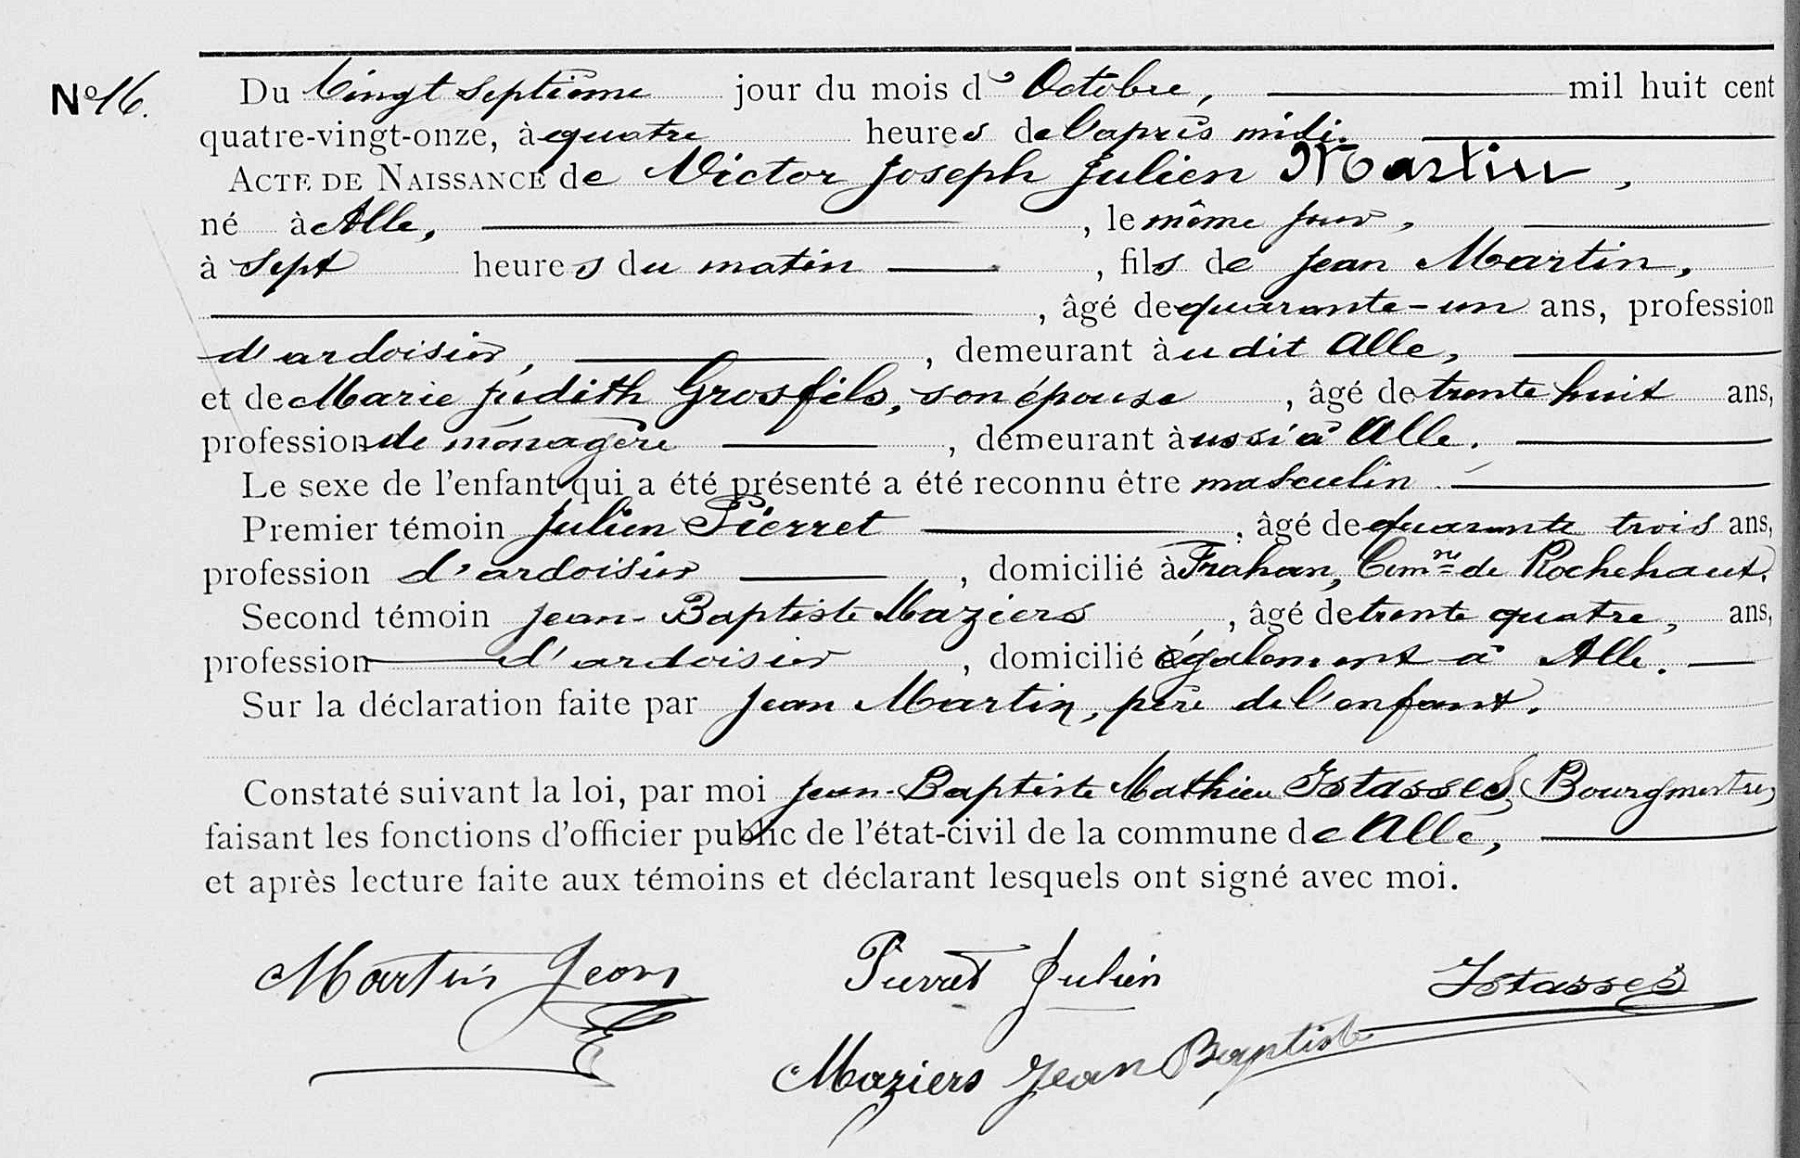 Nº 16.
Du Vingt septième jour du mois d' Octobre, mil huit cent
quatre-vingt-onze, à quatre heures de l'après midi.
ACTE DE NAISSANCE de Victor Joseph Julien Martin,
né à Alle, , le même jour,
à Sept heures du matin , fils de Jean Martin,
, âgé de quarante-un ans, profession
d'ardoisier, , demeurant àudit Alle,
et de Marie Judith Grosfils, son épouse , âgé de trente huit ans,
profession de ménagère , demeurant àussi à Alle.
Le sexe de l'enfant qui a été présenté a été reconnu être masculin
Premier témoin Julien Pierret , âgé de quarante trois ans,
profession d'ardoisier , domicilié à Frahan, Comne de Rochehaut.
Second témoin Jean-Baptiste Maziers , âgé de trente quatre, ans,
profession d'ardoisier , domicilié également à Alle.
Sur la déclaration faite par Jean Martin, père de l'enfant.
Constaté suivant la loi, par moi Jean-Baptiste Mathieu Istasses, Bourgmestre,
faisant les fonctions d'officier public de l'état-civil de la commune de Alle,
et après lecture faite aux témoins et déclarant lesquels ont signé avec moi.
Martin Jean Pierret Julien Istasses
Maziers Jean Baptiste